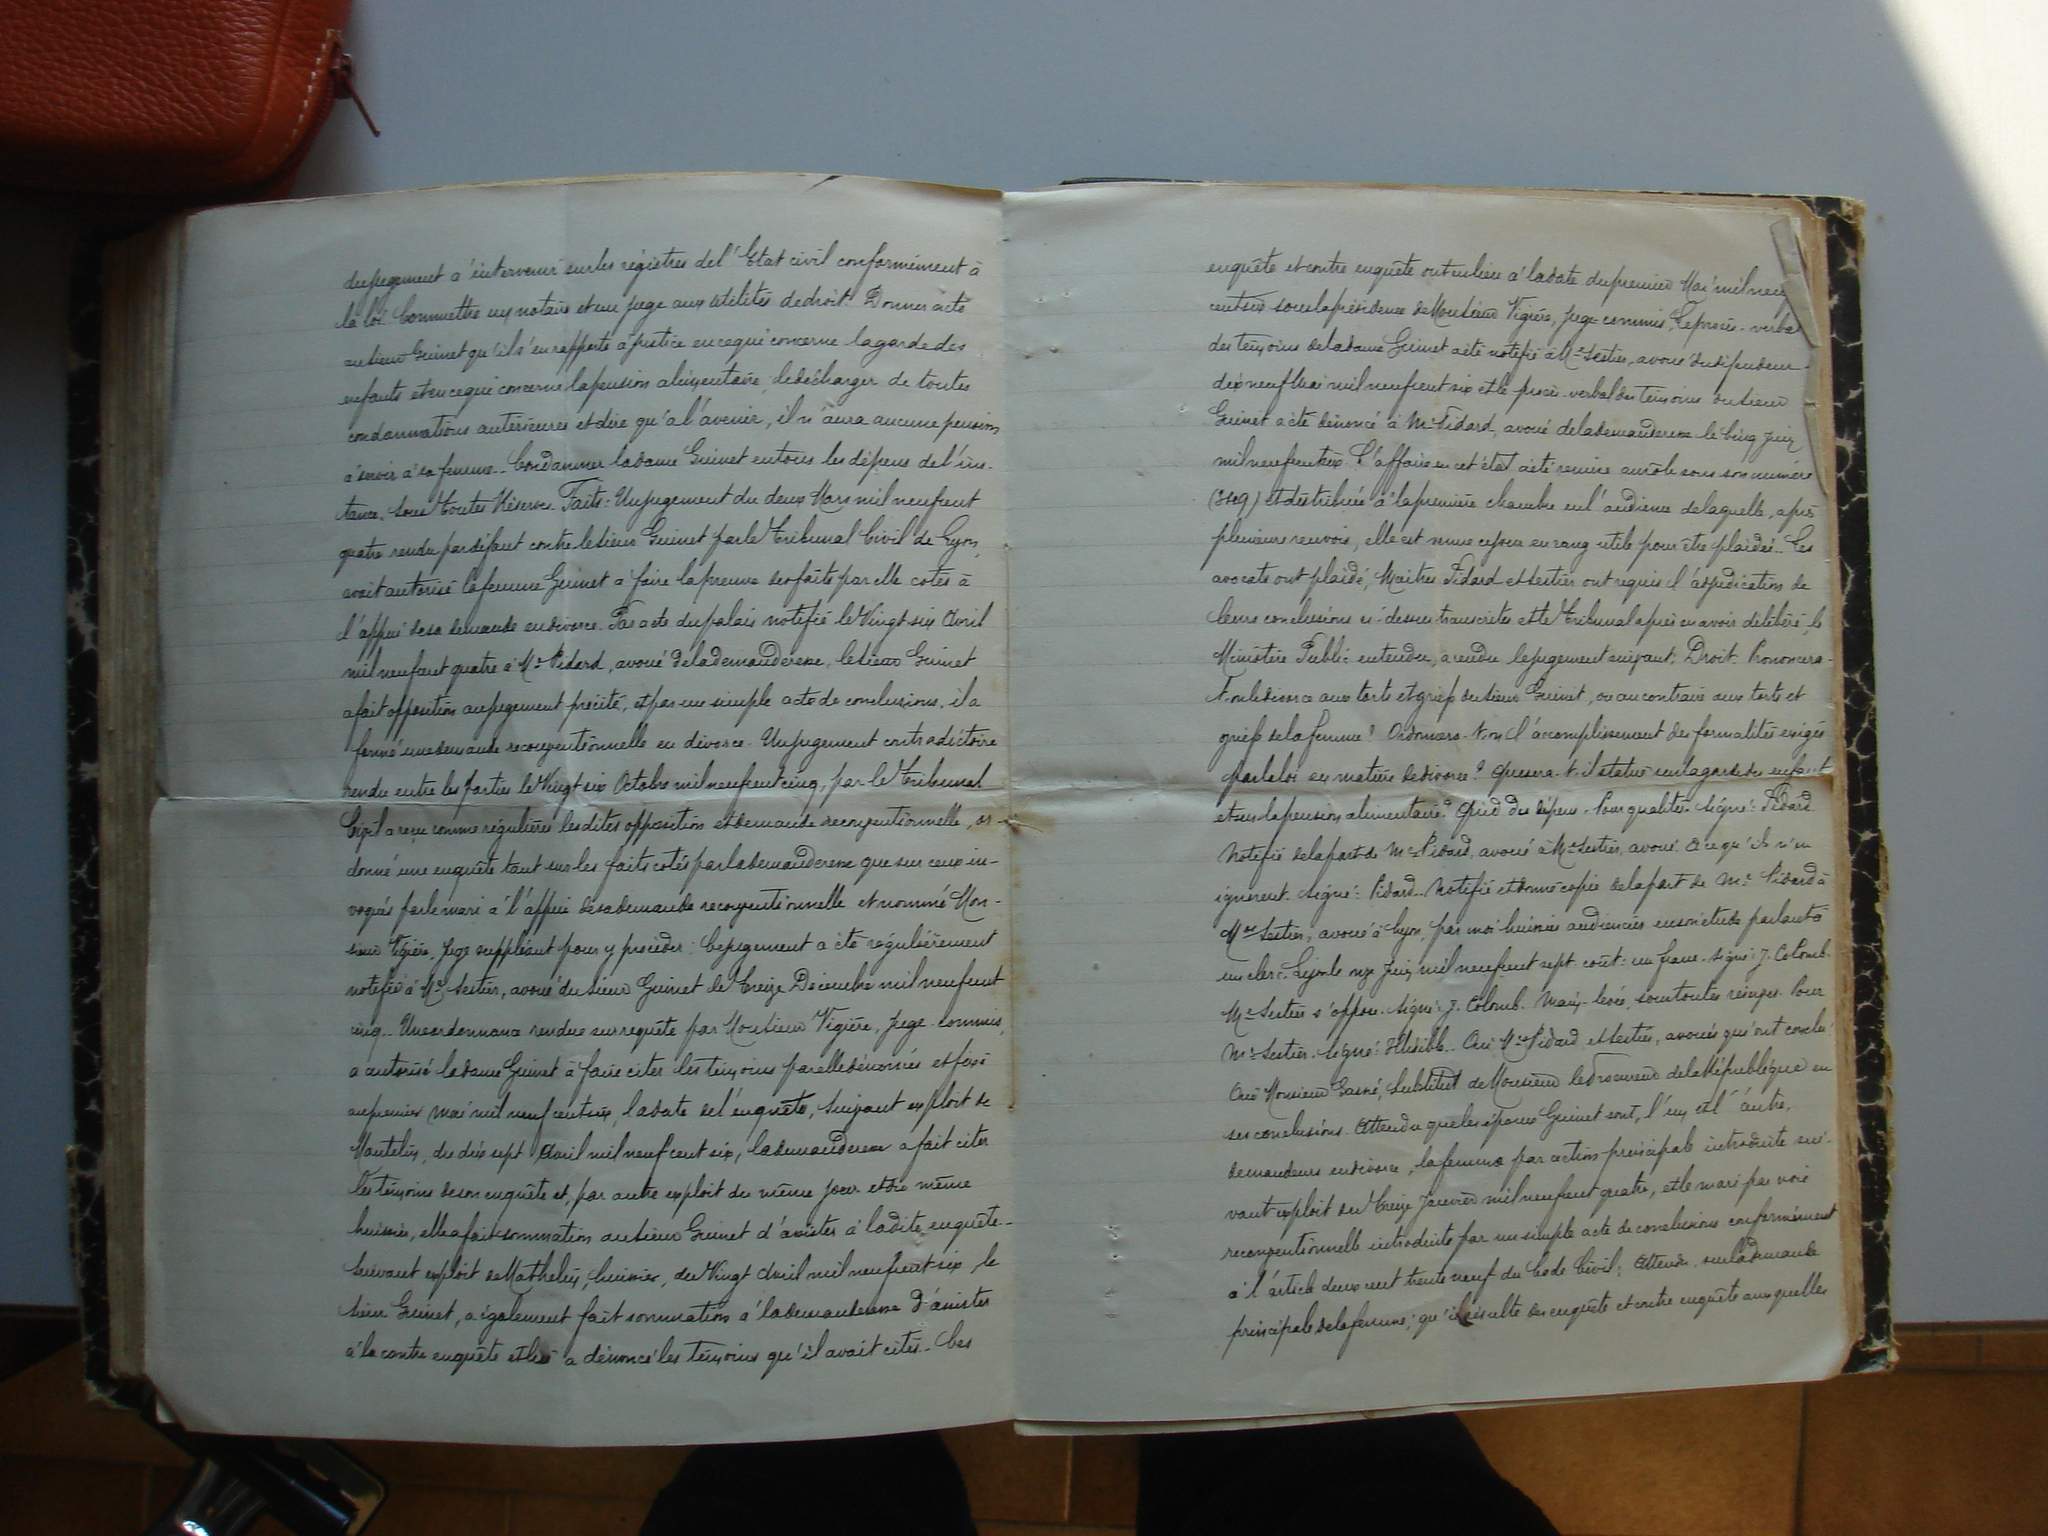 du jugement à intervenir sur les régistres de l'Etat civil conformément à
la loi. Commettre un notaire et un juge aux utilités de droit. Donner acte
au sieur Guinet qu'il s'en rapporte à justice en ce qui concerne la garde des
enfants et en ce qui concerne la pension alimentaire, le décharger de toutes
condamnations antérieures et dire qu'à l'avenir, il n'aura aucune pension
à servir à sa femme. Condamner la dame Guinet en tous les dépens de l'ins-
tance, sous toutes Réserves. Faits: Un jugement du deux Mars mil neuf cent
quatre rendu par défaut contre le sieur Guinet par le Tribunal Civil de Lyon,
avait autorisé la femme Guinet à faire la preuve des faits par elle cotés à
l'appui de sa demande en divorce. Par acte du palais notifié le Vingt six Avril
mil neuf cent quatre à Me Pidard, avoué de la demanderesse, le sieur Guinet
a fait opposition au jugement précité, et par un simple acte de conclusions, il a
formé une demande reconventionnelle en divorce. Un jugement contradictoire
rendu entre les parties le Vingt six Octobre mil neuf cent cinq, par le Tribunal
Civil a reçu comme régulières les dites opposition et demande reconventionnelle, or-
donné une enquête tant sur les faits cotés par la demanderesse que sur ceux in-
voqués par le mari à l'appui de sa demande reconventionnelle et nommé Mon-
sieur Vigière, juge suppléant pour y procéder. Ce jugement a été régulièrement
notifié à Me Sestier, avoué du sieur Guinet le Treize Décembre mil neuf cent
cinq. Une ordonnance rendue sur requête par Monsieur Vigière, juge-commis,
a autorisé la dame Guinet à faire citer les témoins par elle dénommés et fixé
au premier Mai mil neuf cent six, la date de l'enquête, Suivant exploit de
du dix sept Avril mil neuf cent six, la demanderesse a fait citer
les témoins de son enquête et, par autre exploit du même jour et du même
huissier, elle a fait sommation au sieur Guinet d'assister à la dite enquête.
Suivant exploit de Mathelin, huissier, du Vingt Avril mil neuf cent six, le
sieur Guinet, a également fait sommation à la demanderesse d'assister
à la contre enquête et lui a dénoncé les témoins qu'il avait cités. Ces
enquête et contre enquête ont eu lieu à la date du premier Mai mil neuf
cent six sous la présidence de Monsieur Vigière, juge-commis, Le procès-verbal
des témoins de la dame Guinet a été notifié à Me Sestier, avoué du défendeur
dix neuf Mai mil neuf cent six et le procès-verbal des témoins du sieur
Guinet a été dénoncé à Me Pidard, avoué de la demanderesse le cinq Juin
mil neuf cent six. L'affaire en cet état a été remise au rôle sous son numéro
et distribuée à la première chambre en l'audience de laquelle, après
plusieurs renvois, elle est venue ce jour en rang utile pour être plaidée. Les
avocats ont plaidé, Maîtres Pidard et Sestier ont requis l'adjudication de
leurs conclusions ci-dessus transcrites et le Tribunal après en avoir délibéré, le
Ministère Public entendu, a rendu le jugement suivant: Droit. Prononcera-
t-on le divorce aux torts et griefs du sieur Guinet, ou au contraire aux torts et
griefs de la femme? Ordonnera-t-on l'accomplissement des formalités exigées
par la loi en matière de divorce? Que sera-t-il statué sur la garde des enfants
et sur la pension alimentaire? Quid des dépens. Pour qualités. Signé: Pidard.
Notifié de la part de Me Pidard, avoué à Me Sestier, avoué. A ce qu'il n'en
ignorent. Signé: Pidard. Notifié et donné copie de la part de Me Pidard à
Me Sestier, avoué à Lyon, par moi huissier audiencier en son étude parlant à
un clerc. Lyon le onze Juin mil neuf cent sept. coût: un franc. Signé: J. Colomb.
Me Sestier s'oppose. Signé: J. Colomb. Main-levée, sous toutes réserves. Pour
Me Sestier. Signé: Illisible. Ouï Mes Pidard et Sestier, avoués qui ont conclu.
Ouï Monsieur Substitut de Monsieur le Procureur de la République en
ses conclusions. Attendu que les époux Guinet sont, l'un et l'autre,
demandeurs en divorce, la femme par action principale introduite sui-
vant exploit du Treize Janvier mil neuf cent quatre, et le mari par voie
reconventionnelle introduite par un simple acte de conclusions conformément
à l'article deux cent trente neuf du Code Civil; Attendu, sur la demande
principale de la femme; qu'il résulte des enquête et contre enquête auxquelles